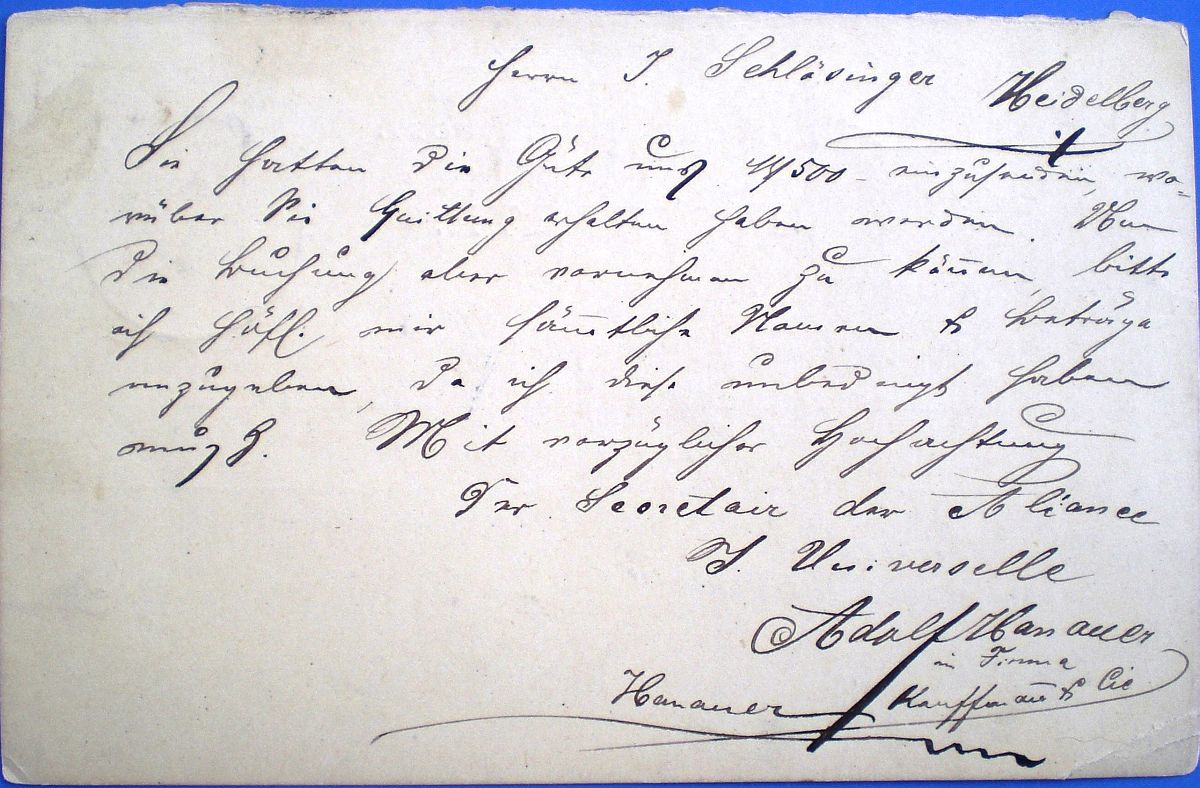 Herrn J. Schlösinger
Heidelberg
Sie hatten die Güte uns M 500 – einzusenden, wo-
rüber Sie Quittung erhalten haben werden. Um
die Buchung aber vornehmen zu können, bitte
ich höfl. mir sämtliche Namen & Beträge
anzugeben, da ich diese unbedingt haben
muß. Mit vorzüglicher Hochachtung
Der Secretair der Aliance
J. Universelle
Adolf Hanauer
in Firma
Hanauer Kauffmann & Cie